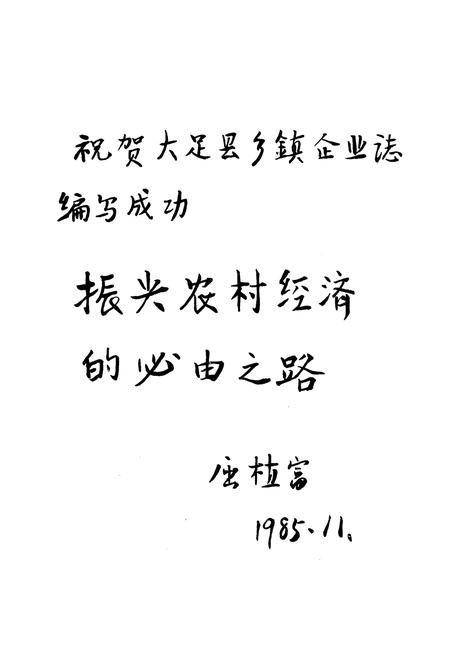 祝贺大足县乡鎮企业誌
编写成功
振兴农村经済
的必由之路
植富
1985.11.